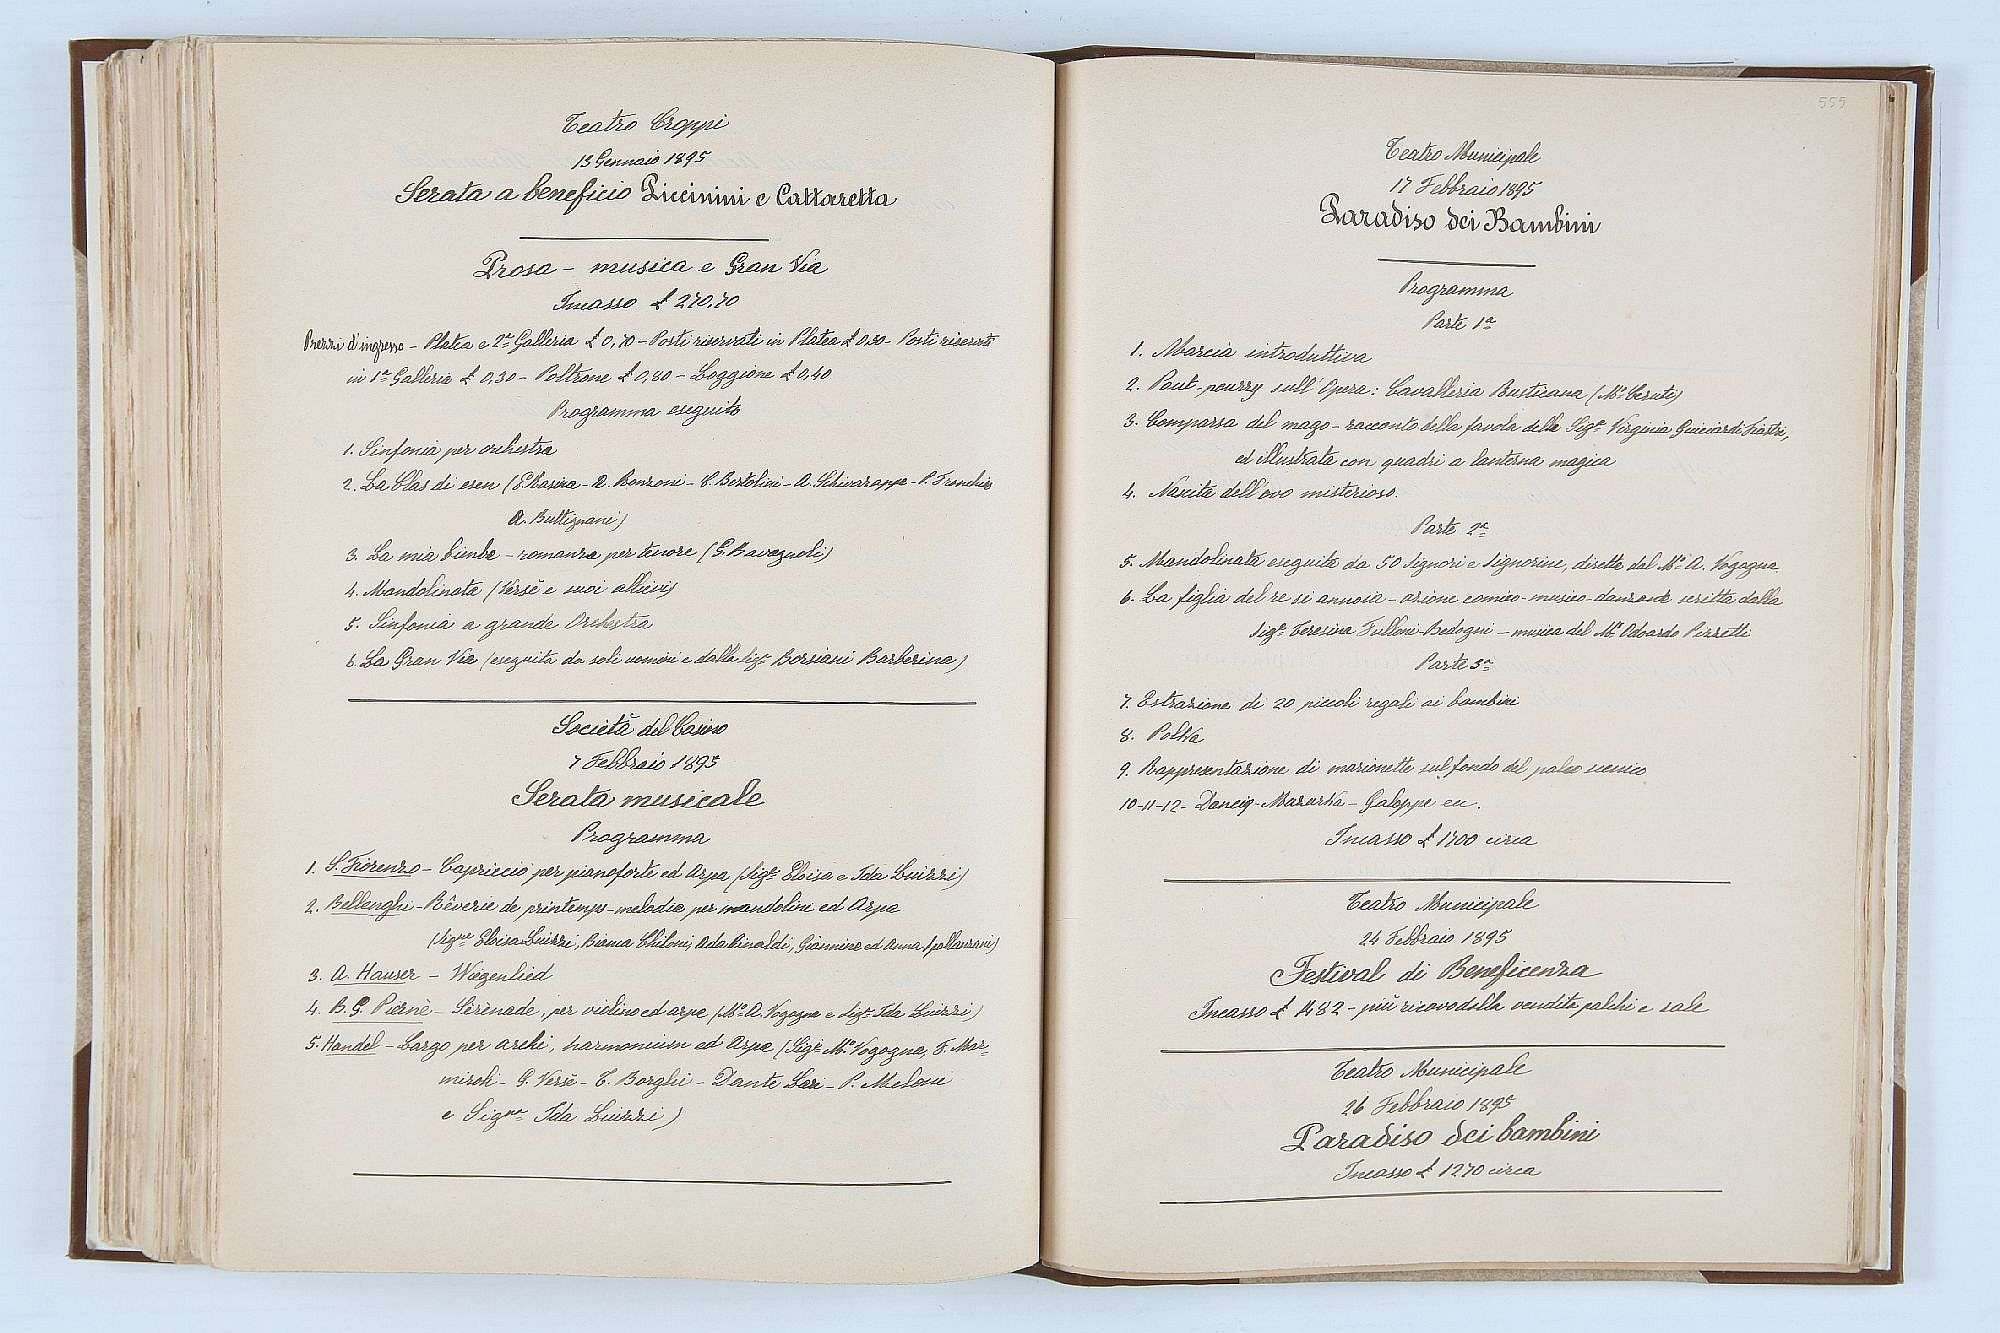 Teatro Croppi
13 Gennaio 1895
Serata a beneficio Piccinini e Cattaretta
Prosa - musica e Gran Via
Incasso £ 270,70
Prezzi d'ingresso - Platea e 2ª Galleria £ 0,70 - Posti riservati in Platea £ 0,30 - Posti riservati
in 1ª Galleria £ 0,30 - Poltrone £ 0,80 - Loggione £ 0,40
Programma eseguito
1. Sinfonia per orchestra
2. La Clas di esen (P. - A. Bonzoni - C. Bertolini - A. Schivazappa - P. Tronchi
A. Buttignani)
3. La mia bimba - romanza per tenore (G. Bavagnoli)
4. Mandolinata (Versè e suoi allievi)
5. Sinfonia a grande Orchestra
6. La Gran Via (eseguita da soli uomini e dalla Sigª Borsiani Barberina)
Società del Casino
7 Febbraio 1895
Serata musicale
Programma
1. S. Fiorenzo - Capriccio per pianoforte ed Arpa (Sigª Eloisa e Ida Luizzi)
2. Bellenghi - Rêverie de printemps - melodia per mandoline ed Arpa
(Sigⁿᵉ Eloisa Luizzi, Bianca Chiloni, Ada Rinaldi, Giannina ed Anna Spallanzani)
3. A. Hauser - Wiegenlied
4. B. G. Piernè - Sérènade, per violino ed arpa (Mº A. Vogogna e Sigª Ida Luizzi)
5. Handel - Largo per archi, harmonium ed Arpa (Sigⁱ Mº Vogogna, F. Mar-
miroli - G. Versè - C. Borghi - Dante - P. Meloni
e Sigⁿᵃ Ida Luizzi)
555
Teatro Municipale
17 Febbraio 1895
Paradiso dei Bambini
Programma
Parte 1ª
1. Marcia introduttiva
2. Pout-pourry sull'Opera: Cavalleria Rusticana (Mº Ceruti)
3. Comparsa del mago - racconto della favola della Sigª Virginia Guicciardi Fiastri,
ed illustrata con quadri a lanterna magica
4. Nascita dell'ovo misterioso.
Parte 2ª
5. Mandolinata eseguita da 50 Signori e Signorine, diretta dal Mº A. Vogogna
6. La figlia del re si annoia - azione comico-musico-danzante scritta dalla
Sigª Teresina Fulloni-Bedogni - musica del Mº Odoardo Pizzetti
Parte 3ª
7. Estrazione di 20 piccoli regali ai bambini
8. Polka
9. Rappresentazione di marionette sul fondo del palco scenico
10-11-12- Dancig-Mazurka - Galoppe ecc.
Incasso £ 1700 circa
Teatro Municipale
24 Febbraio 1895
Festival di Beneficenza
Incasso £ 1482 - più ricavo della vendita palchi e sale
Teatro Municipale
26 Febbraio 1895
Paradiso dei bambini
Incasso £ 1270 circa